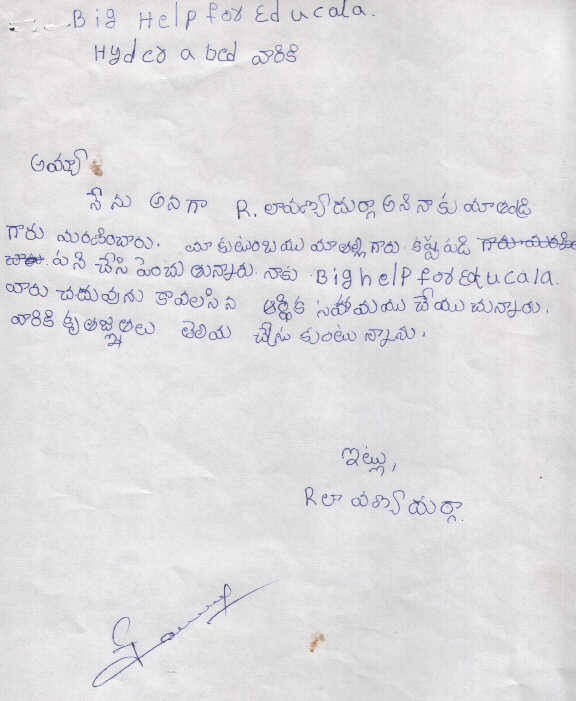 Big Help for Educala.
Hyderabed వారికి
అయ్యా
నేను అనగా R. లావణ్యాదుర్గా అని నాకు మా తండ్రి
గారు మరణించారు. మా కుటుంబము మా తల్లి గారు కష్టపడి
పని చేసి పెంచుతున్నారు. నాకు Big help for Educala.
వారు చదువును కావలసిన ఆర్థిక సహాయము చేయుచున్నారు.
వారికి కృతజ్ఞతలు తెలియ చేసు కుంటున్నాను.
ఇట్లు,
R లావణ్యాదుర్గా.